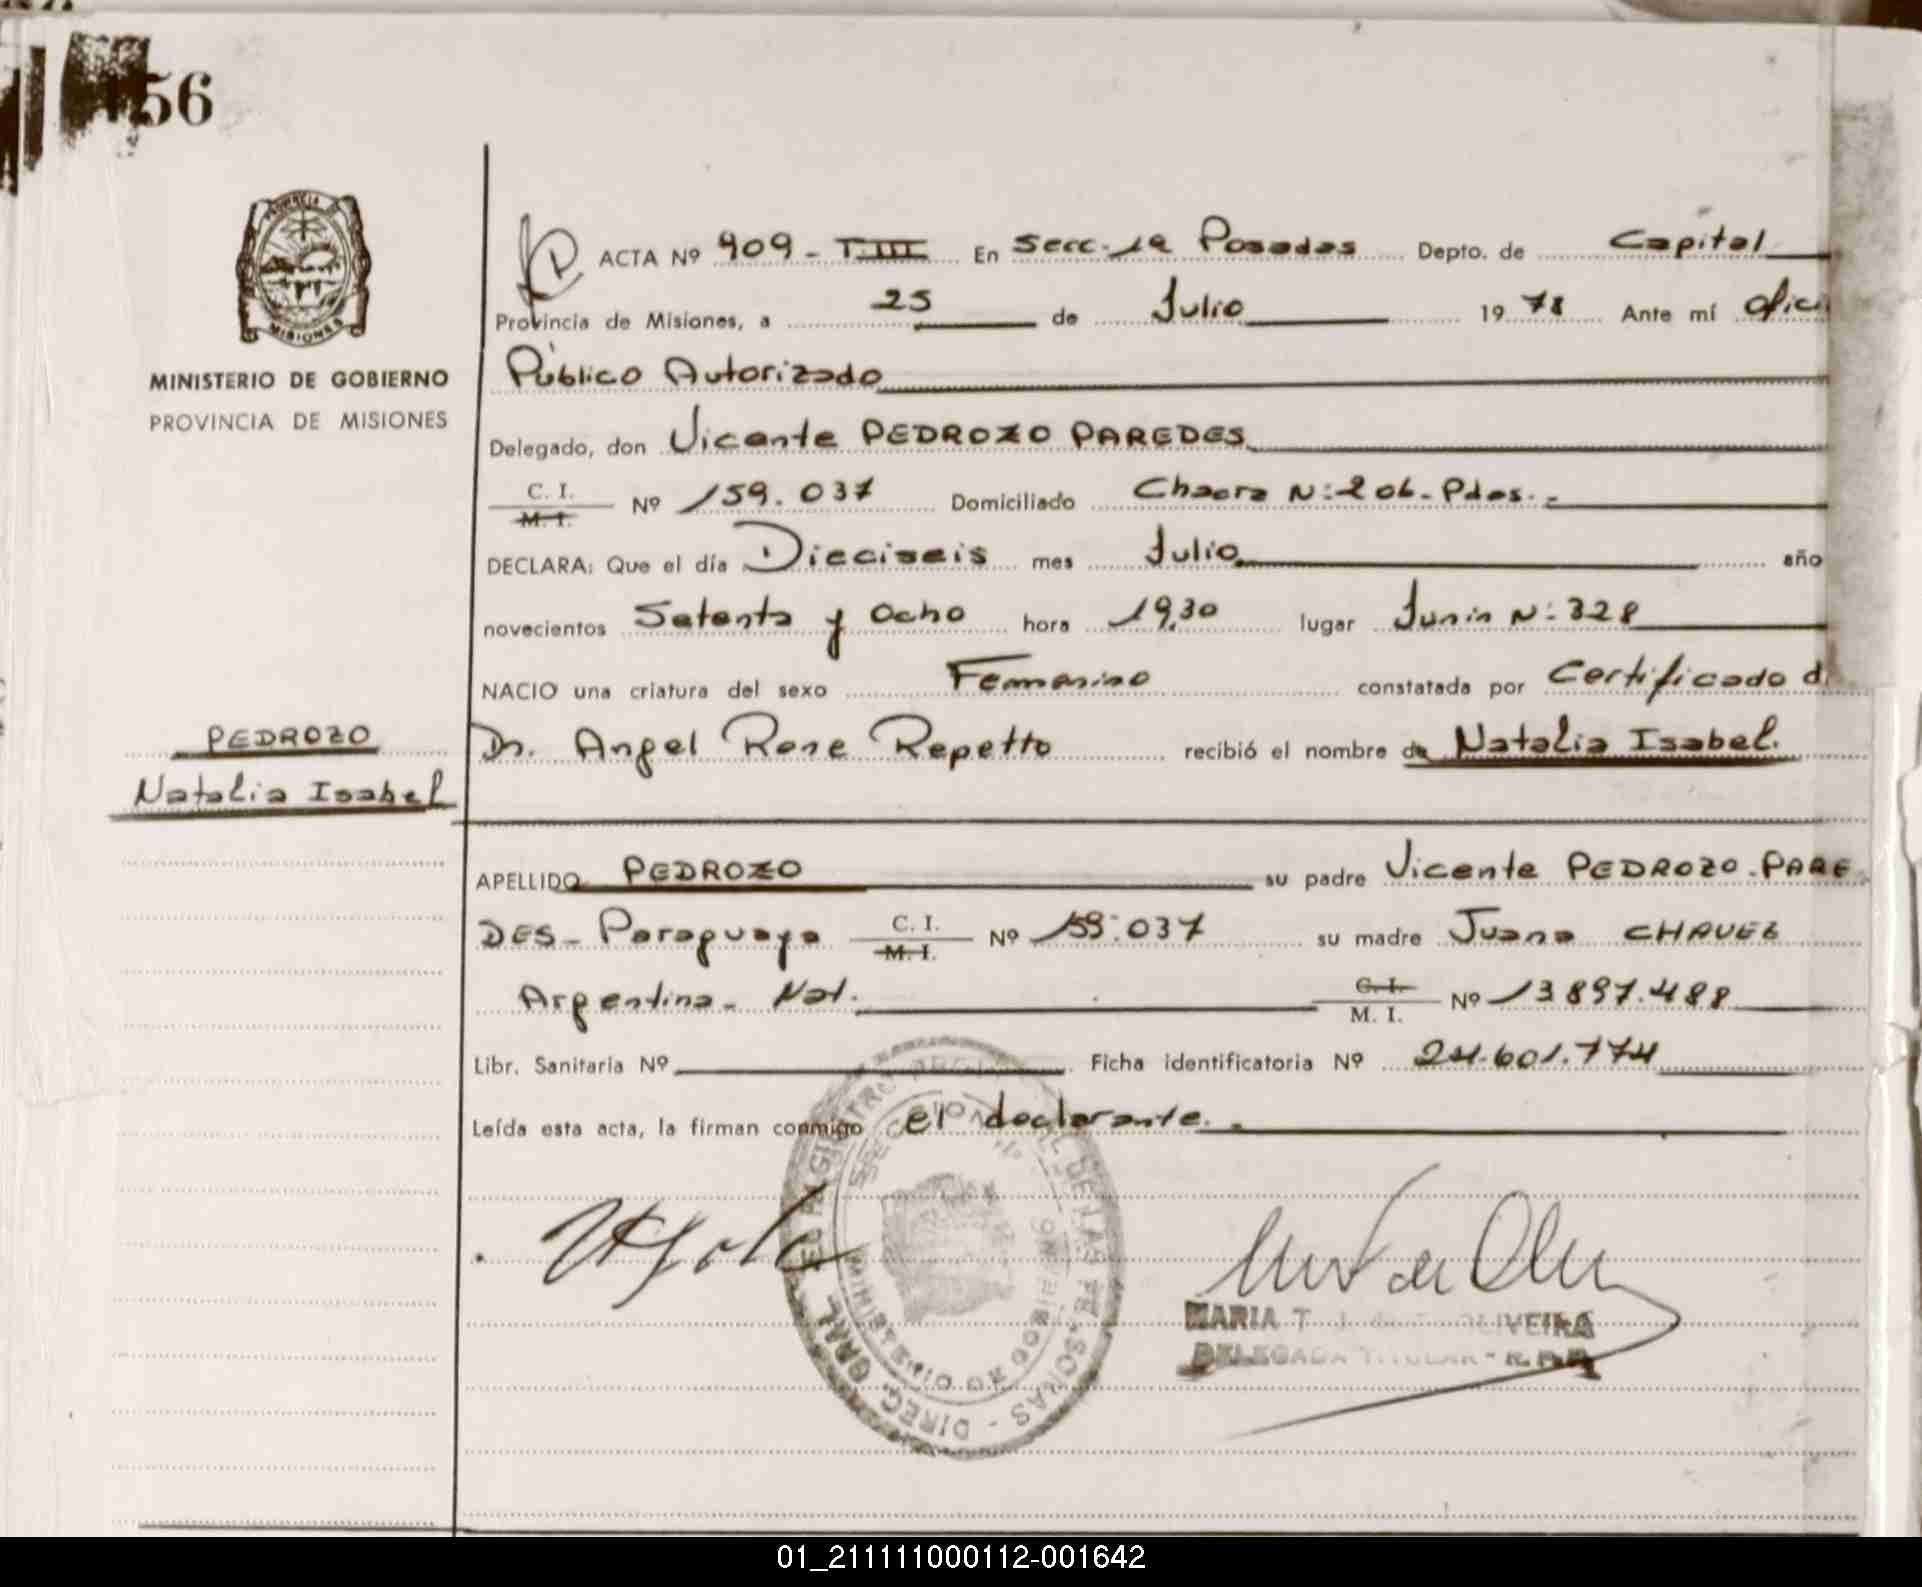 56
PROVINCIA DE
MISIONES
MINISTERIO DE GOBIERNO
PROVINCIA DE MISIONES
ACTA Nº 909 - T.III En Secc. 1a Posadas Depto. de Capital
Provincia de Misiones, a 25 de Julio 1978 Ante mí Ofici
Público Autorizado
Delegado, don Vicente PEDROZO PAREDES
C. I.
M. I.
Nº 159.037 Domiciliado Chacra N: 206. Pdas.
DECLARA: Que el día Dieciseis mes Julio año
novecientos Setenta y Ocho hora 19,30 lugar Junin N: 328
NACIO una criatura del sexo Femenino constatada por Certificado d
PEDROZO
Natalia Isabel
Dr. Angel Rene Repetto recibió el nombre de Natalia Isabel.
APELLIDO PEDROZO su padre Vicente PEDROZO. PARE
DES - Paraguaya C. I. Nº 159.037 su madre Juana CHAVEZ
M. I.
Argentina - Nat. C. I. Nº 13.897.488
M. I.
Libr. Sanitaria Nº Ficha identificatoria Nº 24.601.774
Leída esta acta, la firman conmigo el declarante.
MARIA T OLIVEIRA
DELEGADA TITULAR - R.P.P.
DIREC. GRAL. DE LAS PERSONAS
MINISTERIO DE GOBIERNO
01_211111000112-001642